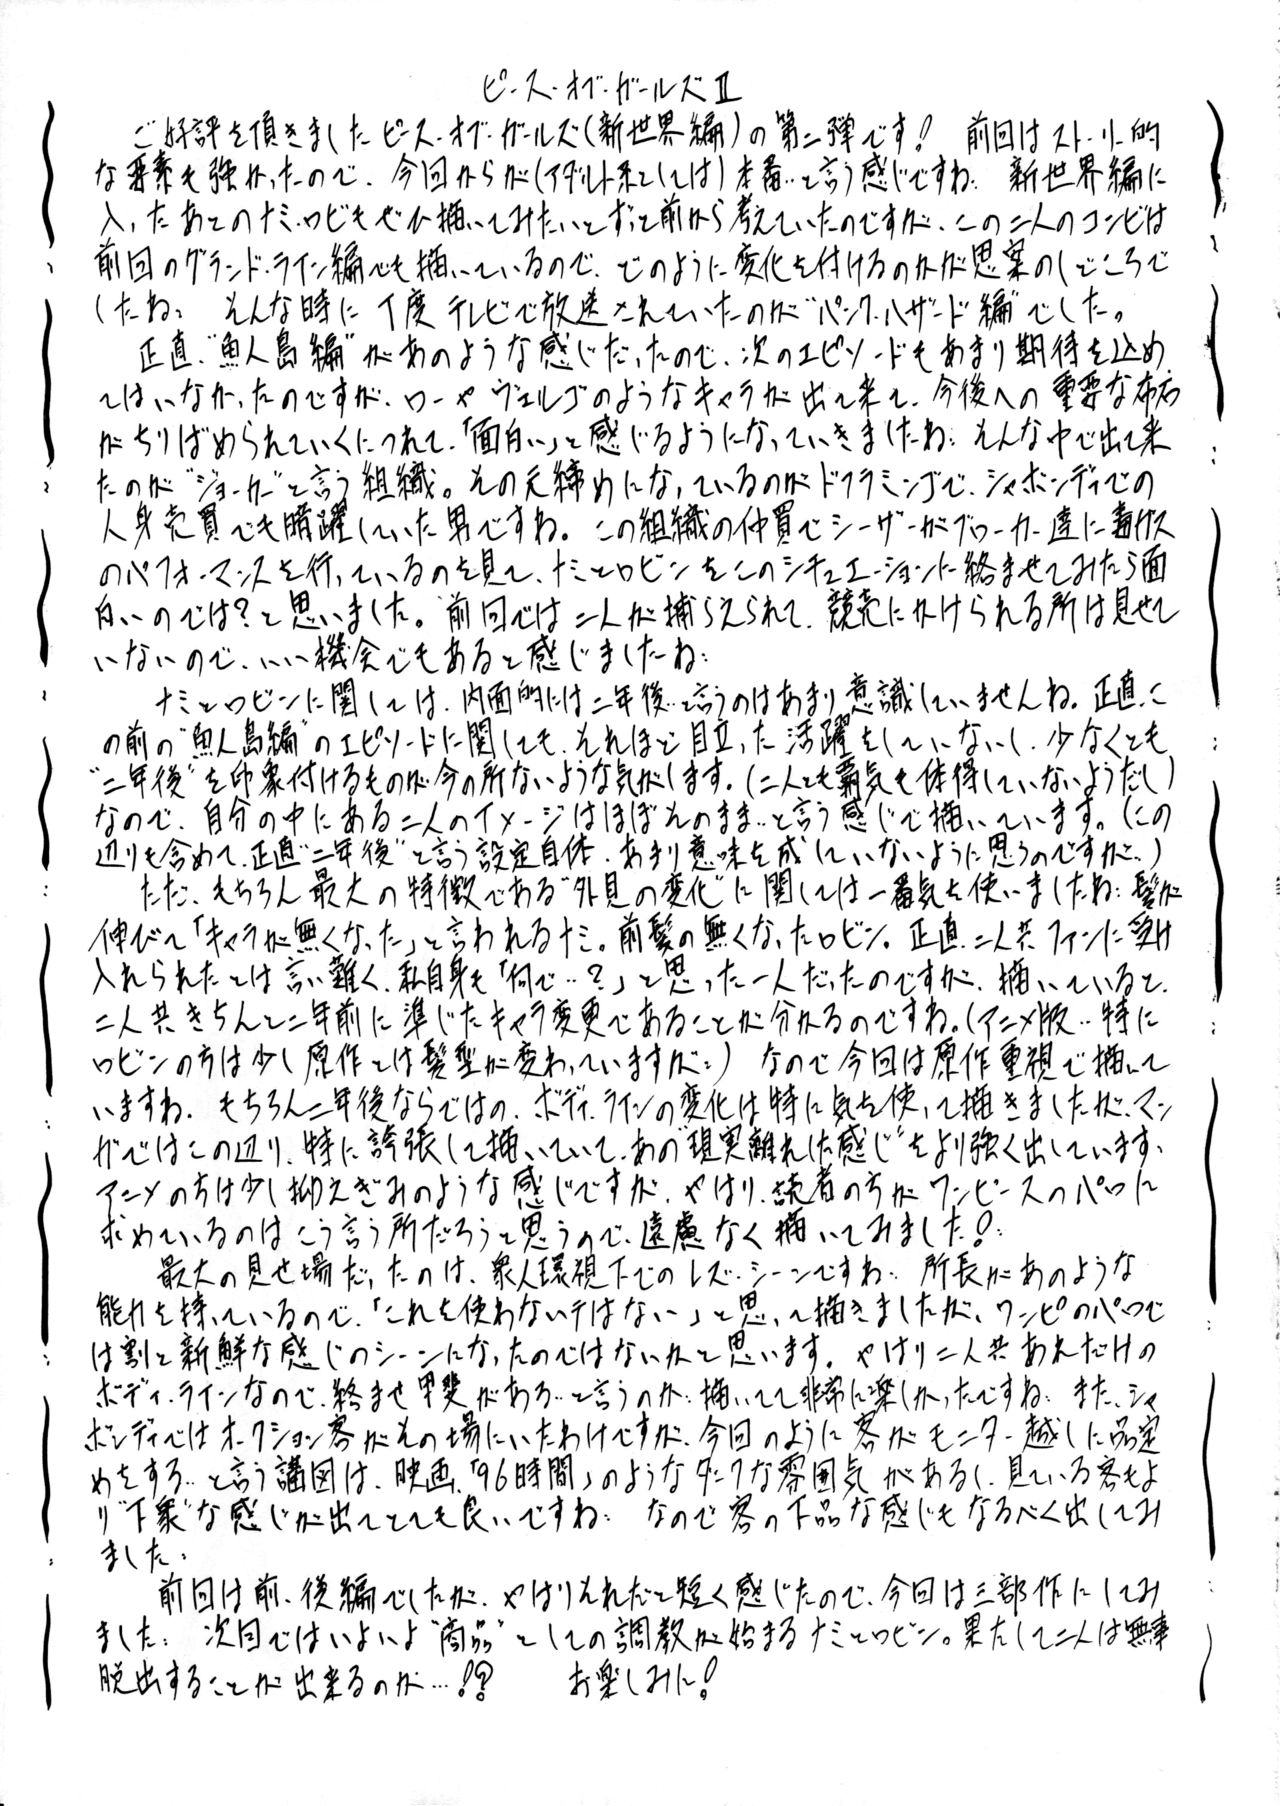 ピース・オブ・ガールズⅡ
ご好評を頂きましたピース・オブ・ガールズ(新世界編)の第二弾です! 前回はストーリー的
な要素も強かったので、今回からが(アダルト系としては)本番‥と言う感じですね‥ 新世界編に
入ったあとのナミ・ロビもぜひ描いてみたいとずっと前から考えていたのですが、この二人のコンビは
前回のグランド・ライン編でも描いているので、どのように変化を付けるのかが思案のしどころで
したね‥ そんな時に丁度テレビで放送されていたのが“パンク・ハザード編”でした。
正直、“魚人島編”があのような感じだったので、次のエピソードもあまり期待を込め
てはいなかったのですが、ローやヴェルゴのようなキャラが出て来て、今後への重要な布石
がちりばめられていくにつれて、「面白い」と感じるようになっていきましたね‥ そんな中で出て来
たのが“ジョーカー”と言う組織。その元締めになっているのがドフラミンゴで、シャボンディでの
人身売買でも暗躍していた男ですね。この組織の仲買でシーザーがブローカー達に毒ガス
のパフォーマンスを行っているのを見て、ナミとロビンをこのシチュエーションに絡ませてみたら面
白いのでは?と思いました。前回では二人が捕らえられて、競売にかけられる所は見せて
いないので、いい機会でもあると感じましたね‥
ナミとロビンに関しては、内面的には二年後‥と言うのはあまり意識していませんね。正直、こ
の前の“魚人島編”のエピソードに関しても、それほど目立った活躍をしていないし、少なくとも
“二年後”を印象付けるものが今の所ないような気がします。(二人とも覇気も体得していないようだし)
なので、自分の中にある二人のイメージはほぼそのまま‥と言う感じで描いています。(この
辺りも含めて、正直“二年後”と言う設定自体、あまり意味を成していないように思うのですが‥)
ただ、もちろん最大の特徴である“外見の変化”に関しては一番気を使いましたね‥髪が
伸びて「キャラが無くなった」と言われるナミ。前髪の無くなったロビン。正直、二人共ファンに受け
入れられたとは言い難く、私自身も「何で‥?」と思った一人だったのですが、描いていると、
二人共きちんと二年前に準じたキャラ変更であることが分かるのですね。(アニメ版‥特に
ロビンの方は少し原作とは髪型が変わっていますが‥) なので今回は原作重視で描いて
いますね。もちろん二年後ならではの、ボディ・ラインの変化は特に気を使って描きましたが、マン
ガではこの辺り、特に誇張して描いていて、あの“現実離れした感じ”をより強く出しています、
アニメの方は少し抑えぎみのような感じですが、やはり、読者の方がワンピースのパロに
求めているのはこう言う所だろうと思うので、遠慮なく描いてみました!‥
最大の見せ場だったのは、衆人環視下でのレズ・シーンですね‥ 所長があのような
能力を持っているので、「これを使わないテはない」と思って描きましたが、ワンピのパロで
は割と新鮮な感じのシーンになったのではないかと思います。やはり二人共あれだけの
ボディ・ラインなので、絡ませ甲斐がある‥と言うのか‥描いてて非常に楽しかったですね‥また、シャ
ボンディではオークション客がその場にいたわけですが、今回のように客がモニター越しに品定
めをする‥と言う構図は、映画、「96時間」のようなダークな雰囲気があるし、見ている客もよ
り“下衆”な感じが出てとても良いですね‥ なので客の下品な感じもなるべく出してみ
ました‥
前回は前、後編でしたが、やはりそれだと短く感じたので、今回は三部作にしてみ
ました‥ 次回ではいよいよ“商品”としての調教が始まるナミとロビン。果たして二人は無事
脱出することが出来るのか…!? お楽しみに!